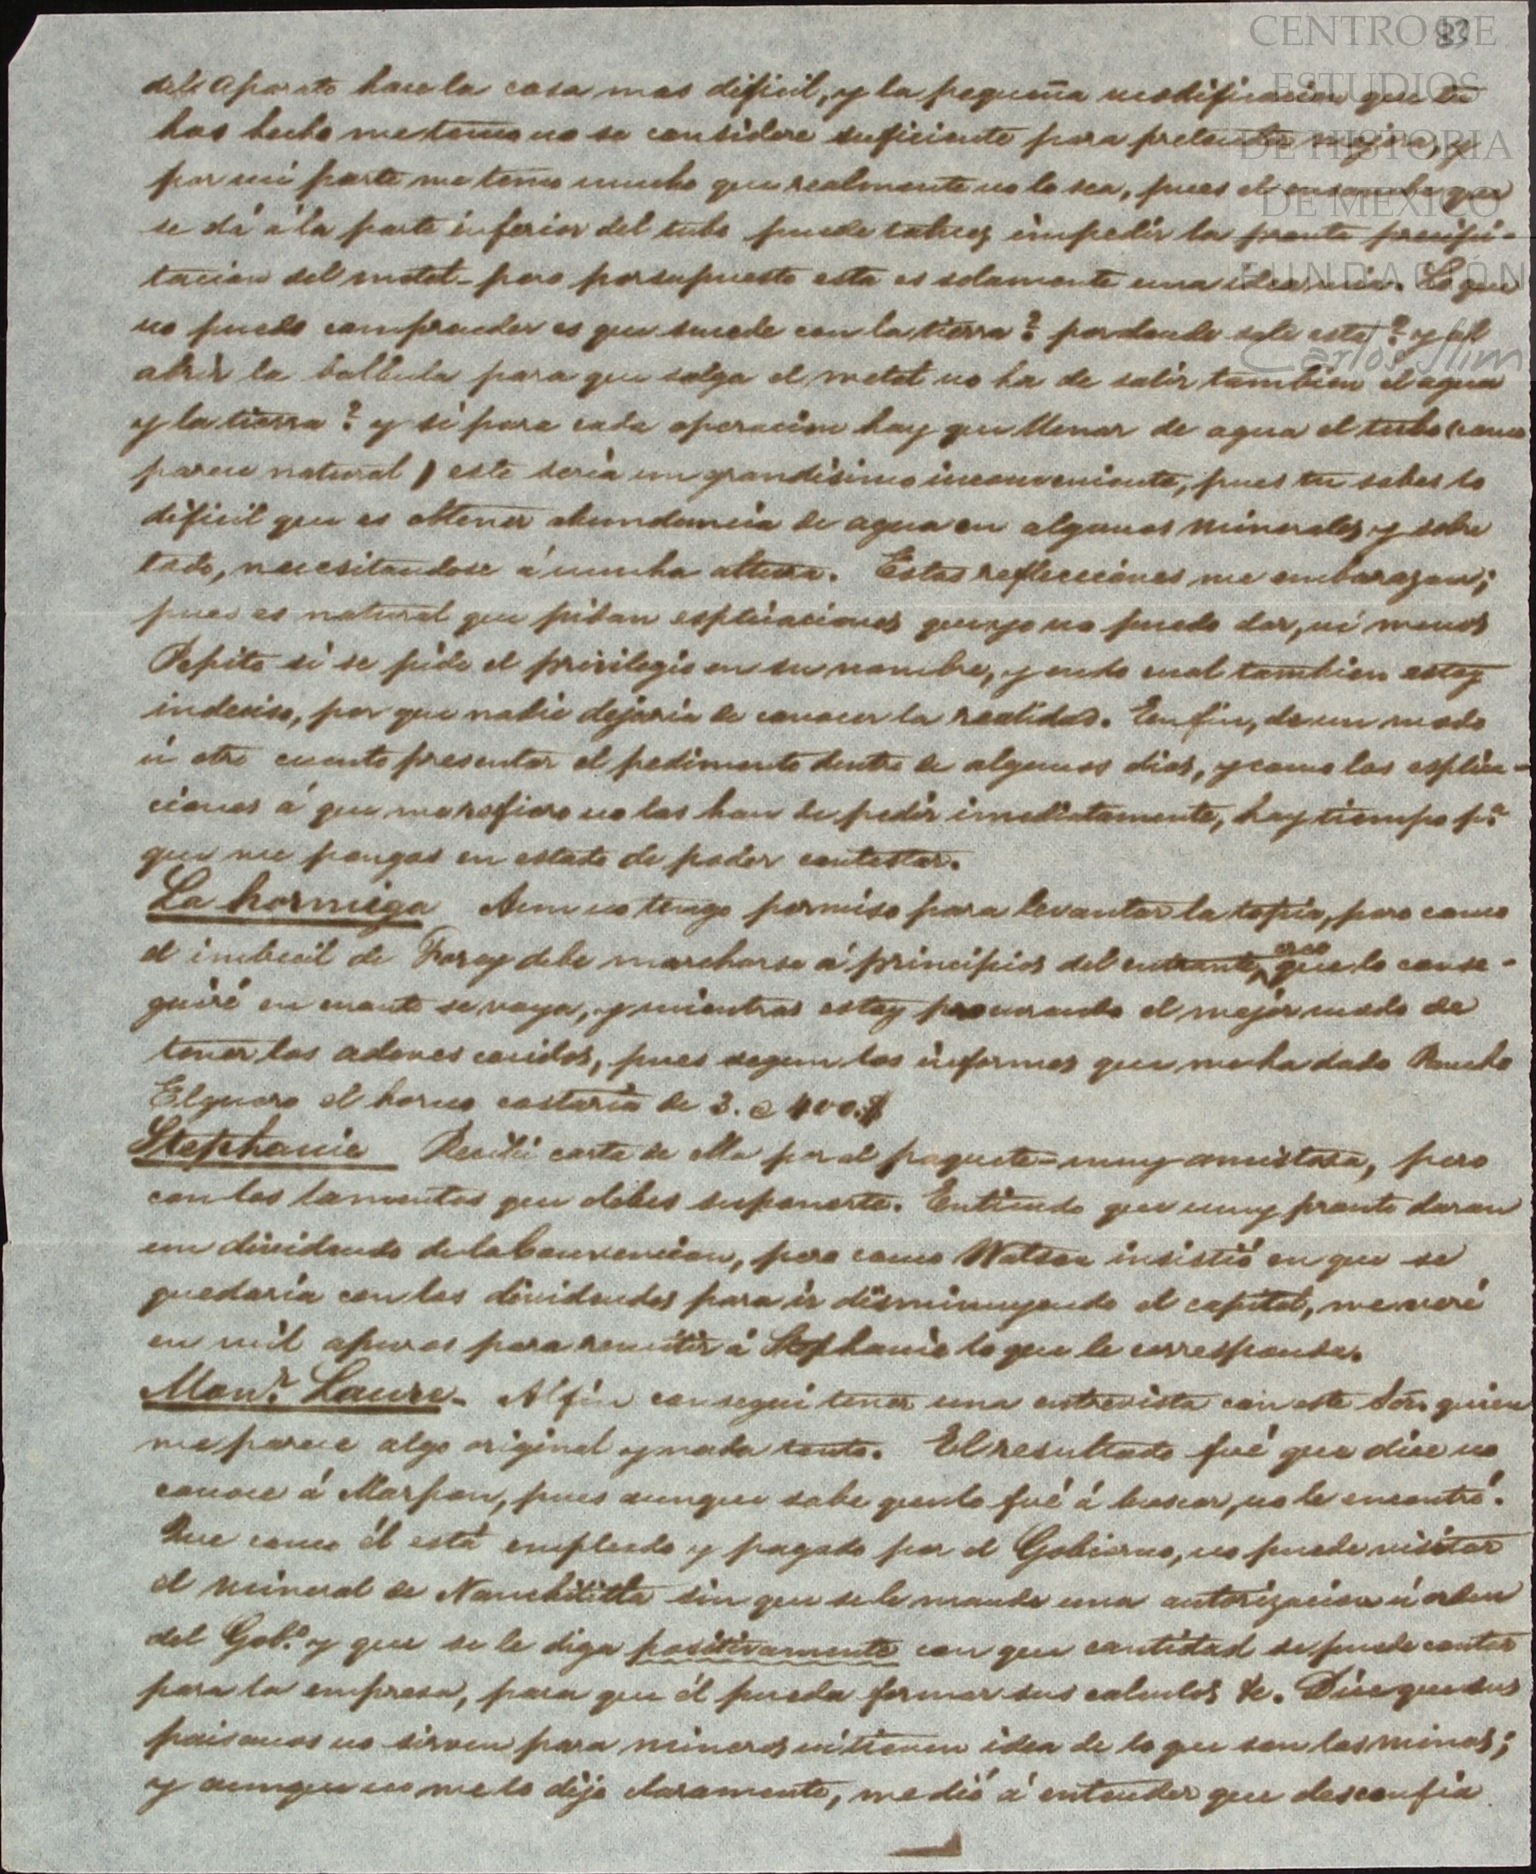 23
CENTRO DE
ESTUDIOS
DE HISTORIA
DE MÉXICO
FUNDACIÓN
Carlos Slim
del aparato hace la cosa mas dificil, y la pequeña modificacion que tu
has hecho me temo no se considere suficiente para pretender mejora, y
por mi parte me temo mucho que realmente no lo sea, pues el ensanche que
se dá á la parte inferior del tubo puede talvez impedir la pronta precipi-
tacion del metal - pero porsupuesto esta es solamente una idea mia. Lo que
no puedo comprender es que sucede con la tierra? por donde sale esta? y al
abrir la balbula para que salga el metal no ha de salir tambien el agua
y la tierra? y si para cada operacion hay que llenar de agua el tubo (como
parece natural) este seria un grandisimo inconveniente, pues tu sabes lo
dificil que es obtener abundancia de agua en algunos minerales, y sobre
todo, necesitandose á mucha altura. Estas reflecciones me embarazan;
pues es natural que pidan esplicaciones que yo no puedo dar, ni menos
Pepita si se pide el privilegio en su nombre, y en lo cual tambien estoy
indeciso, por que nadie dejaria de conocer la realidad. En fin, de un modo
ú otro cuento presentar el pedimento dentro de algunos dias, y como las esplica-
ciones á que me refiero no las han de pedir imediatamente, hay tiempo pa.
que me pongas en estado de poder contestar.
La hormiga Aun no tengo permiso para levantar la tapia, pero como
el imbecil de Forey debe marcharse á principios del entrante, creo que lo conse-
guiré en cuanto se vaya, y mientras estoy procurando el mejor modo de
tener los adoves cocidos, pues segun los informes que me ha dado Pancho
Elguero el horno costaria de 3. @ 400.$
Stephanie Recibi carta de ella por el paquete - muy amistosa, pero
con los lamentos que debes suponerte. Entiendo que muy pronto daran
un dividendo de la Convencion, pero como Watson insistió en que se
quedaria con los dividendos para ir disminuyendo el capital, me veré
en mil apuros para remitir á Stephanie lo que le corresponde.
Monr. Laure - Al fin consegui tener una entrevista con este Sor. quien
me parece algo original y nada tonto. El resultado fué que dice no
conoce á Marpon, pues aunque sabe que lo fué á buscar, no le encontró.
Que como él está empleado y pagado por el Gobierno, no puede visitar
el mineral de Nanchititla sin que se le mande una autorizacion ú orden
del Gobo. y que se le diga positivamente con que cantidad se puede contar
para la empresa, para que él pueda formar sus calculos &c. Dice que sus
paisanos no sirven para mineros ni tienen idea de lo que son las minas;
y aunque no me lo dijo claramente, me dió á entender que desconfia